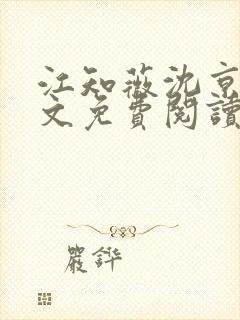 江知薇沈京
文免費閱讀
嚴鏵